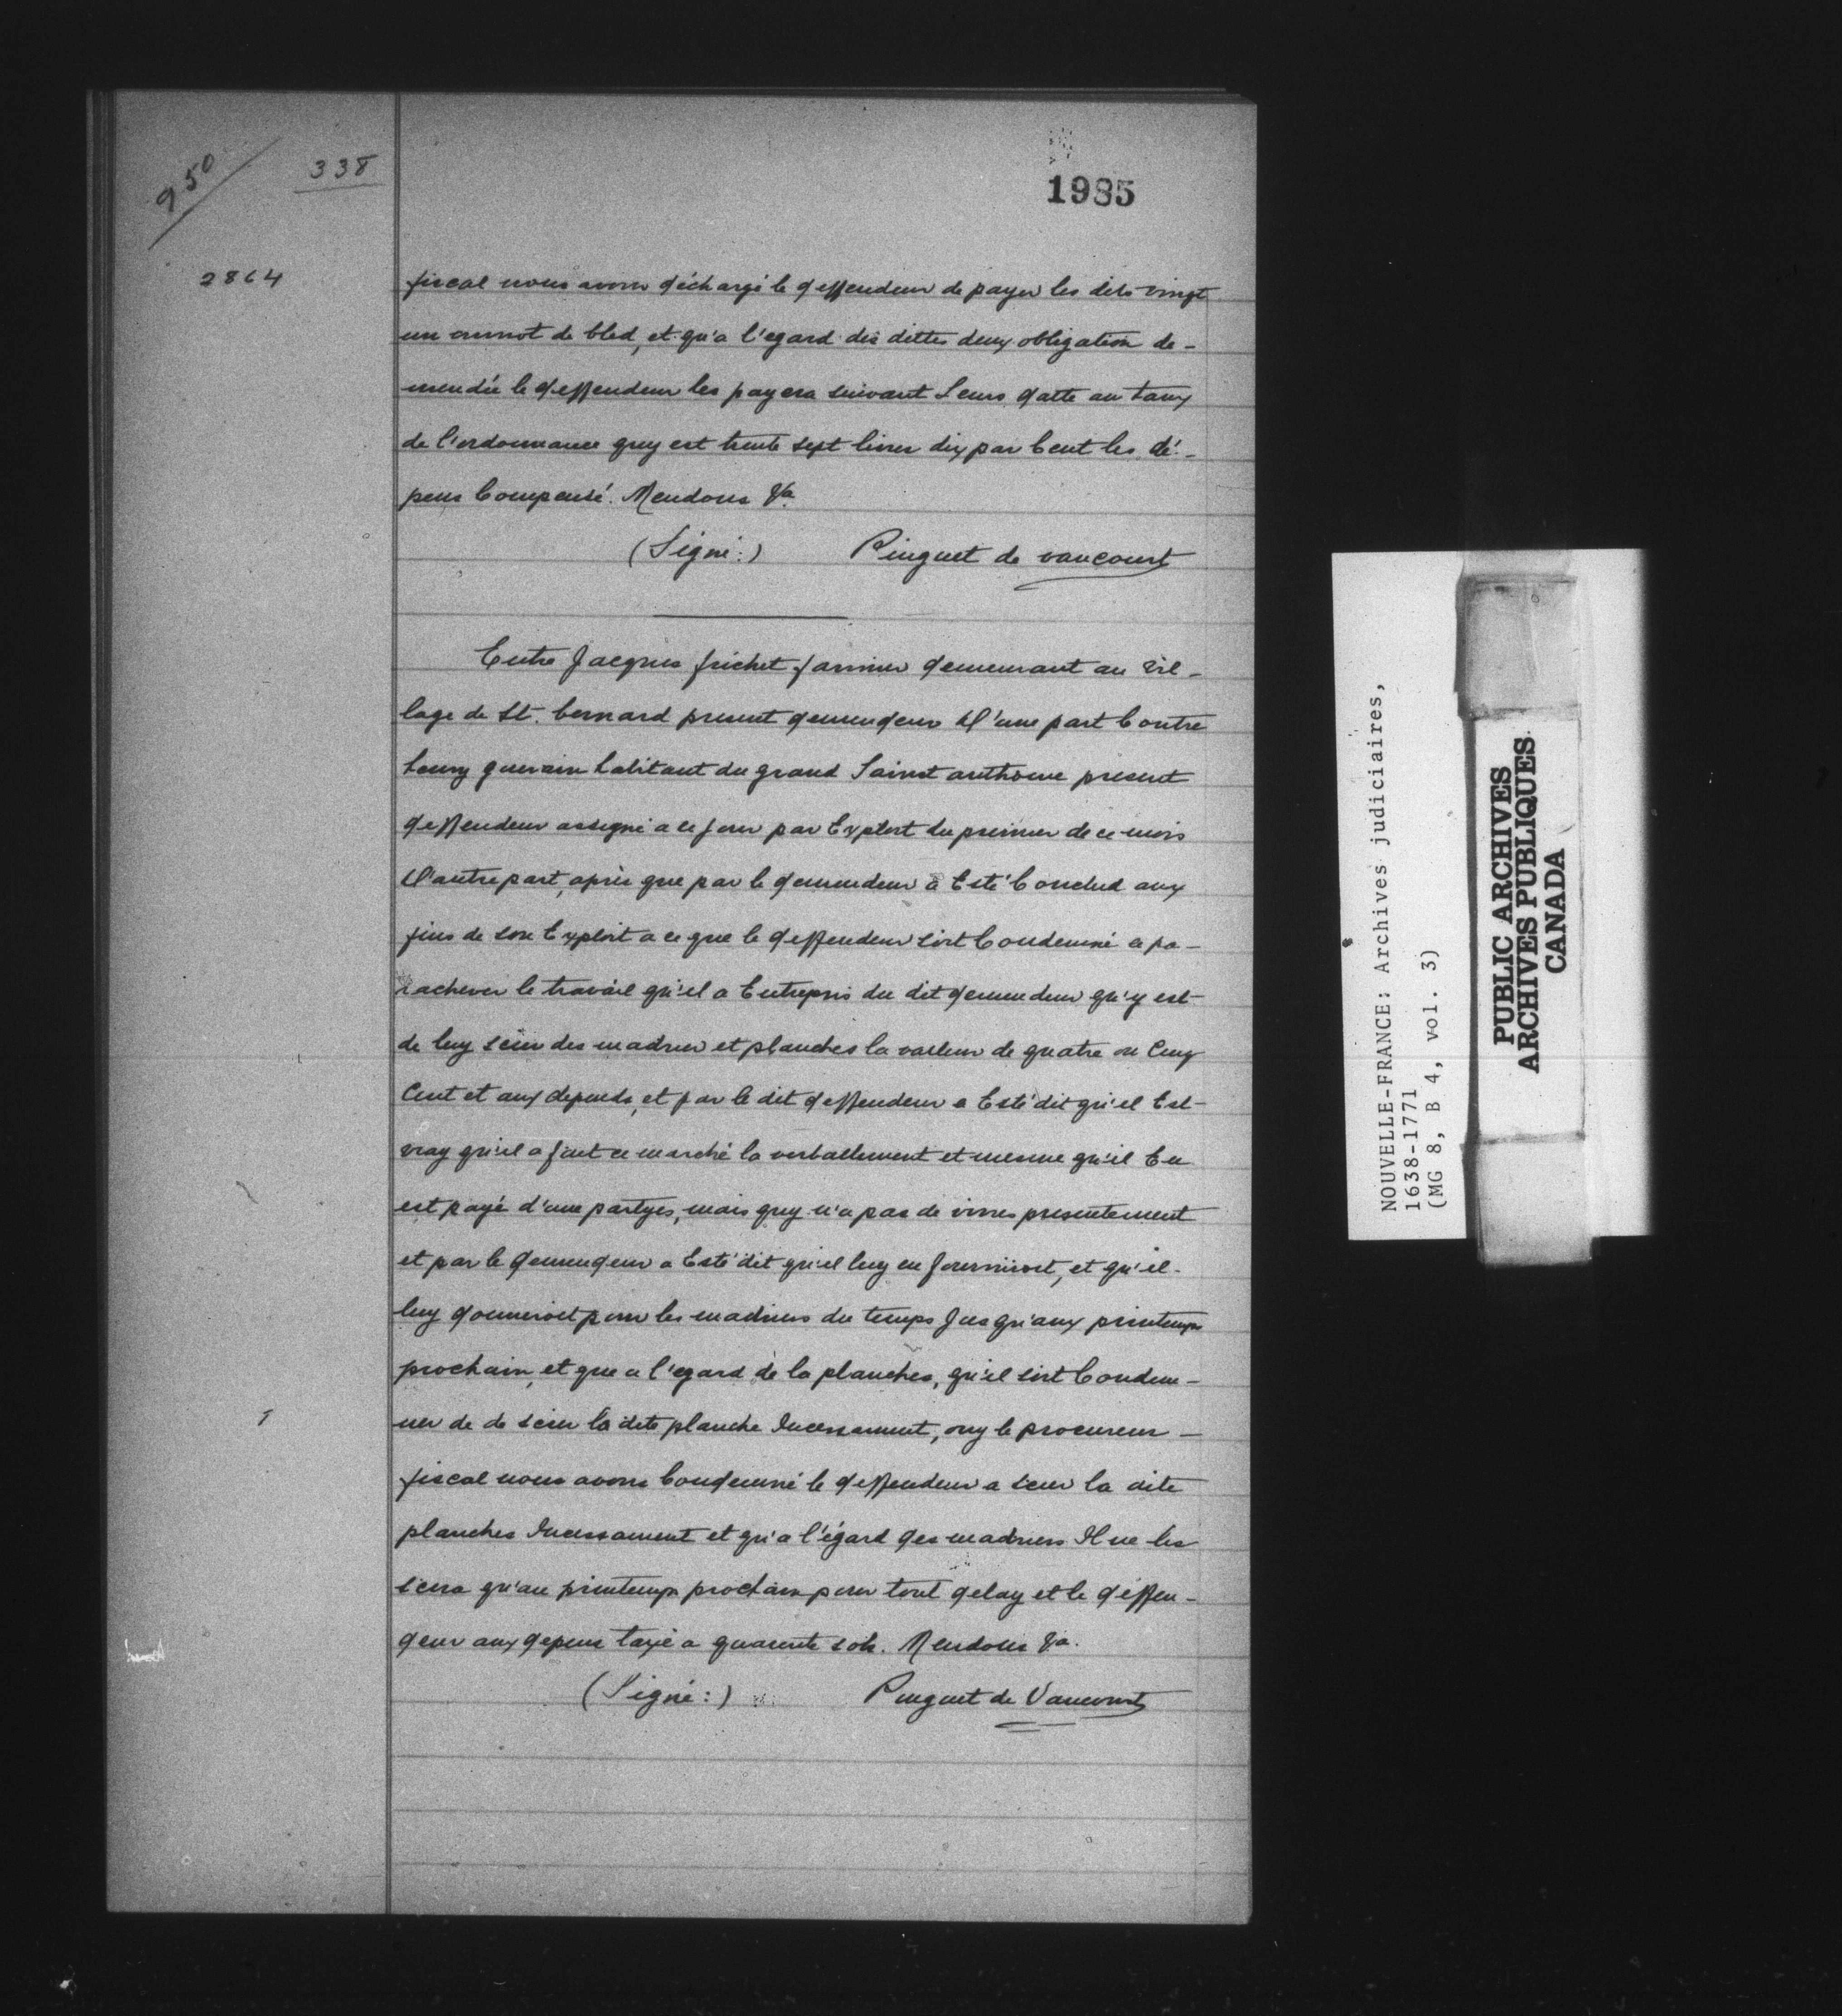 950
338
1985
2864
fiscal nous avons déchargé le deffendeur de payer les dits vingt
un minot de bled, et qu'a l'egard des dittes deux obligation de-
mendée le deffendeur les payera suivant Leurs datte au taux
de l'ordonnance quy est trente sept livres dix par Cent les dé-
pens Compensé. Mendons &a.
(Signé:) Pinguet de vaucourt
Entre Jacques frichet farinier demeurant au vil-
lage de St. bernard present demendeur d'une part Contre
Louy guerain habitant du grand Sainct anthoine present
deffendeur assigné a ce jour par Exploit du premier de ce mois
d'autre part, après que par le demendeur a Esté Conclud aux
fins de son Exploit a ce que le deffendeur soit Condemné a pa-
rachever le travail qu'il a Entrepris du dit demendeur qu'y est
de luy scier des madrier et planches la valleur de quatre ou Cinq
Cent et aux depends, et par le dit deffendeur a Esté dit qu'il Est
vray qu'il a fait ce marché la verballement et mesme qu'il En
est payé d'une partyes, mais quy n'a pas de vivres presentement
et par le demendeur a Esté dit qu'il luy en fourniroit, et qu'il
luy donneroit pour les madriers du temps Jusqu'aux printemps
prochain, et que a l'egard de la planches, qu'il soit Condem-
ner de de scier la dite planche Incessament, ouy le procureur
fiscal nous avons Condemné le deffendeur a scier la dite
planches Incessament et qu'a l'égard des madriers Il ne les
sciera qu'au printemps prochain pour tout delay et le deffen-
deur aux depens taxé a quarente sols. Mendons &a.
(Signé:) Pinguet de Vaucourt
NOUVELLE-FRANCE: Archives judiciaires,
1638-1771
(MG 8, B 4, vol. 3)
PUBLIC ARCHIVES
ARCHIVES PUBLIQUES
CANADA